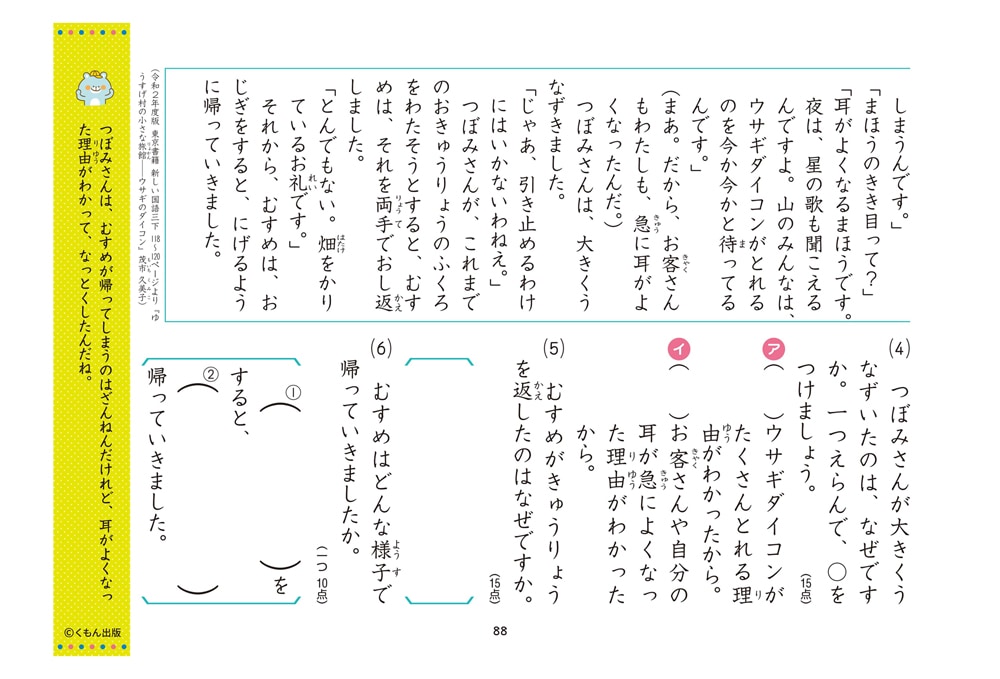 しまうんです。」
「まほうのきき目って？」
「耳がよくなるまほうです。
夜は、星の歌も聞こえる
んですよ。山のみんなは、
ウサギダイコンがとれる
のを今か今かと待ってる
んです。」
(まあ。だから、お客さん
もわたしも、急に耳がよ
くなったんだ。)
つぼみさんは、大きくう
なずきました。
「じゃあ、引き止めるわけ
にはいかないわねえ。」
つぼみさんが、これまで
のおきゅうりょうのふくろ
をわたそうとすると、むす
めは、それを両手でおし返
しました。
「とんでもない。畑をかり
ているお礼です。」
それから、むすめは、お
じぎをすると、にげるよう
に帰っていきました。
(令和２年度版 東京書籍 新しい国語三下 118〜120ページより『ゆ
うすげ村の小さな旅館――ウサギのダイコン』茂市 久美子)
(4) つぼみさんが大きくう
なずいたのは、なぜです
か。一つえらんで、○を
つけましょう。
(15点)
ア ( ) ウサギダイコンが
たくさんとれる理
由がわかったから。
イ ( ) お客さんや自分の
耳が急によくなっ
た理由がわかった
から。
(5) むすめがきゅうりょう
を返したのはなぜですか。
(15点)
(6) むすめはどんな様子で
帰っていきましたか。
(一つ10点)
① ( ) を
すると、
② ( )
帰っていきました。
つぼみさんは、むすめが帰ってしまうのはざんねんだけれど、耳がよくなっ
た理由がわかって、なっとくしたんだね。
©くもん出版
88